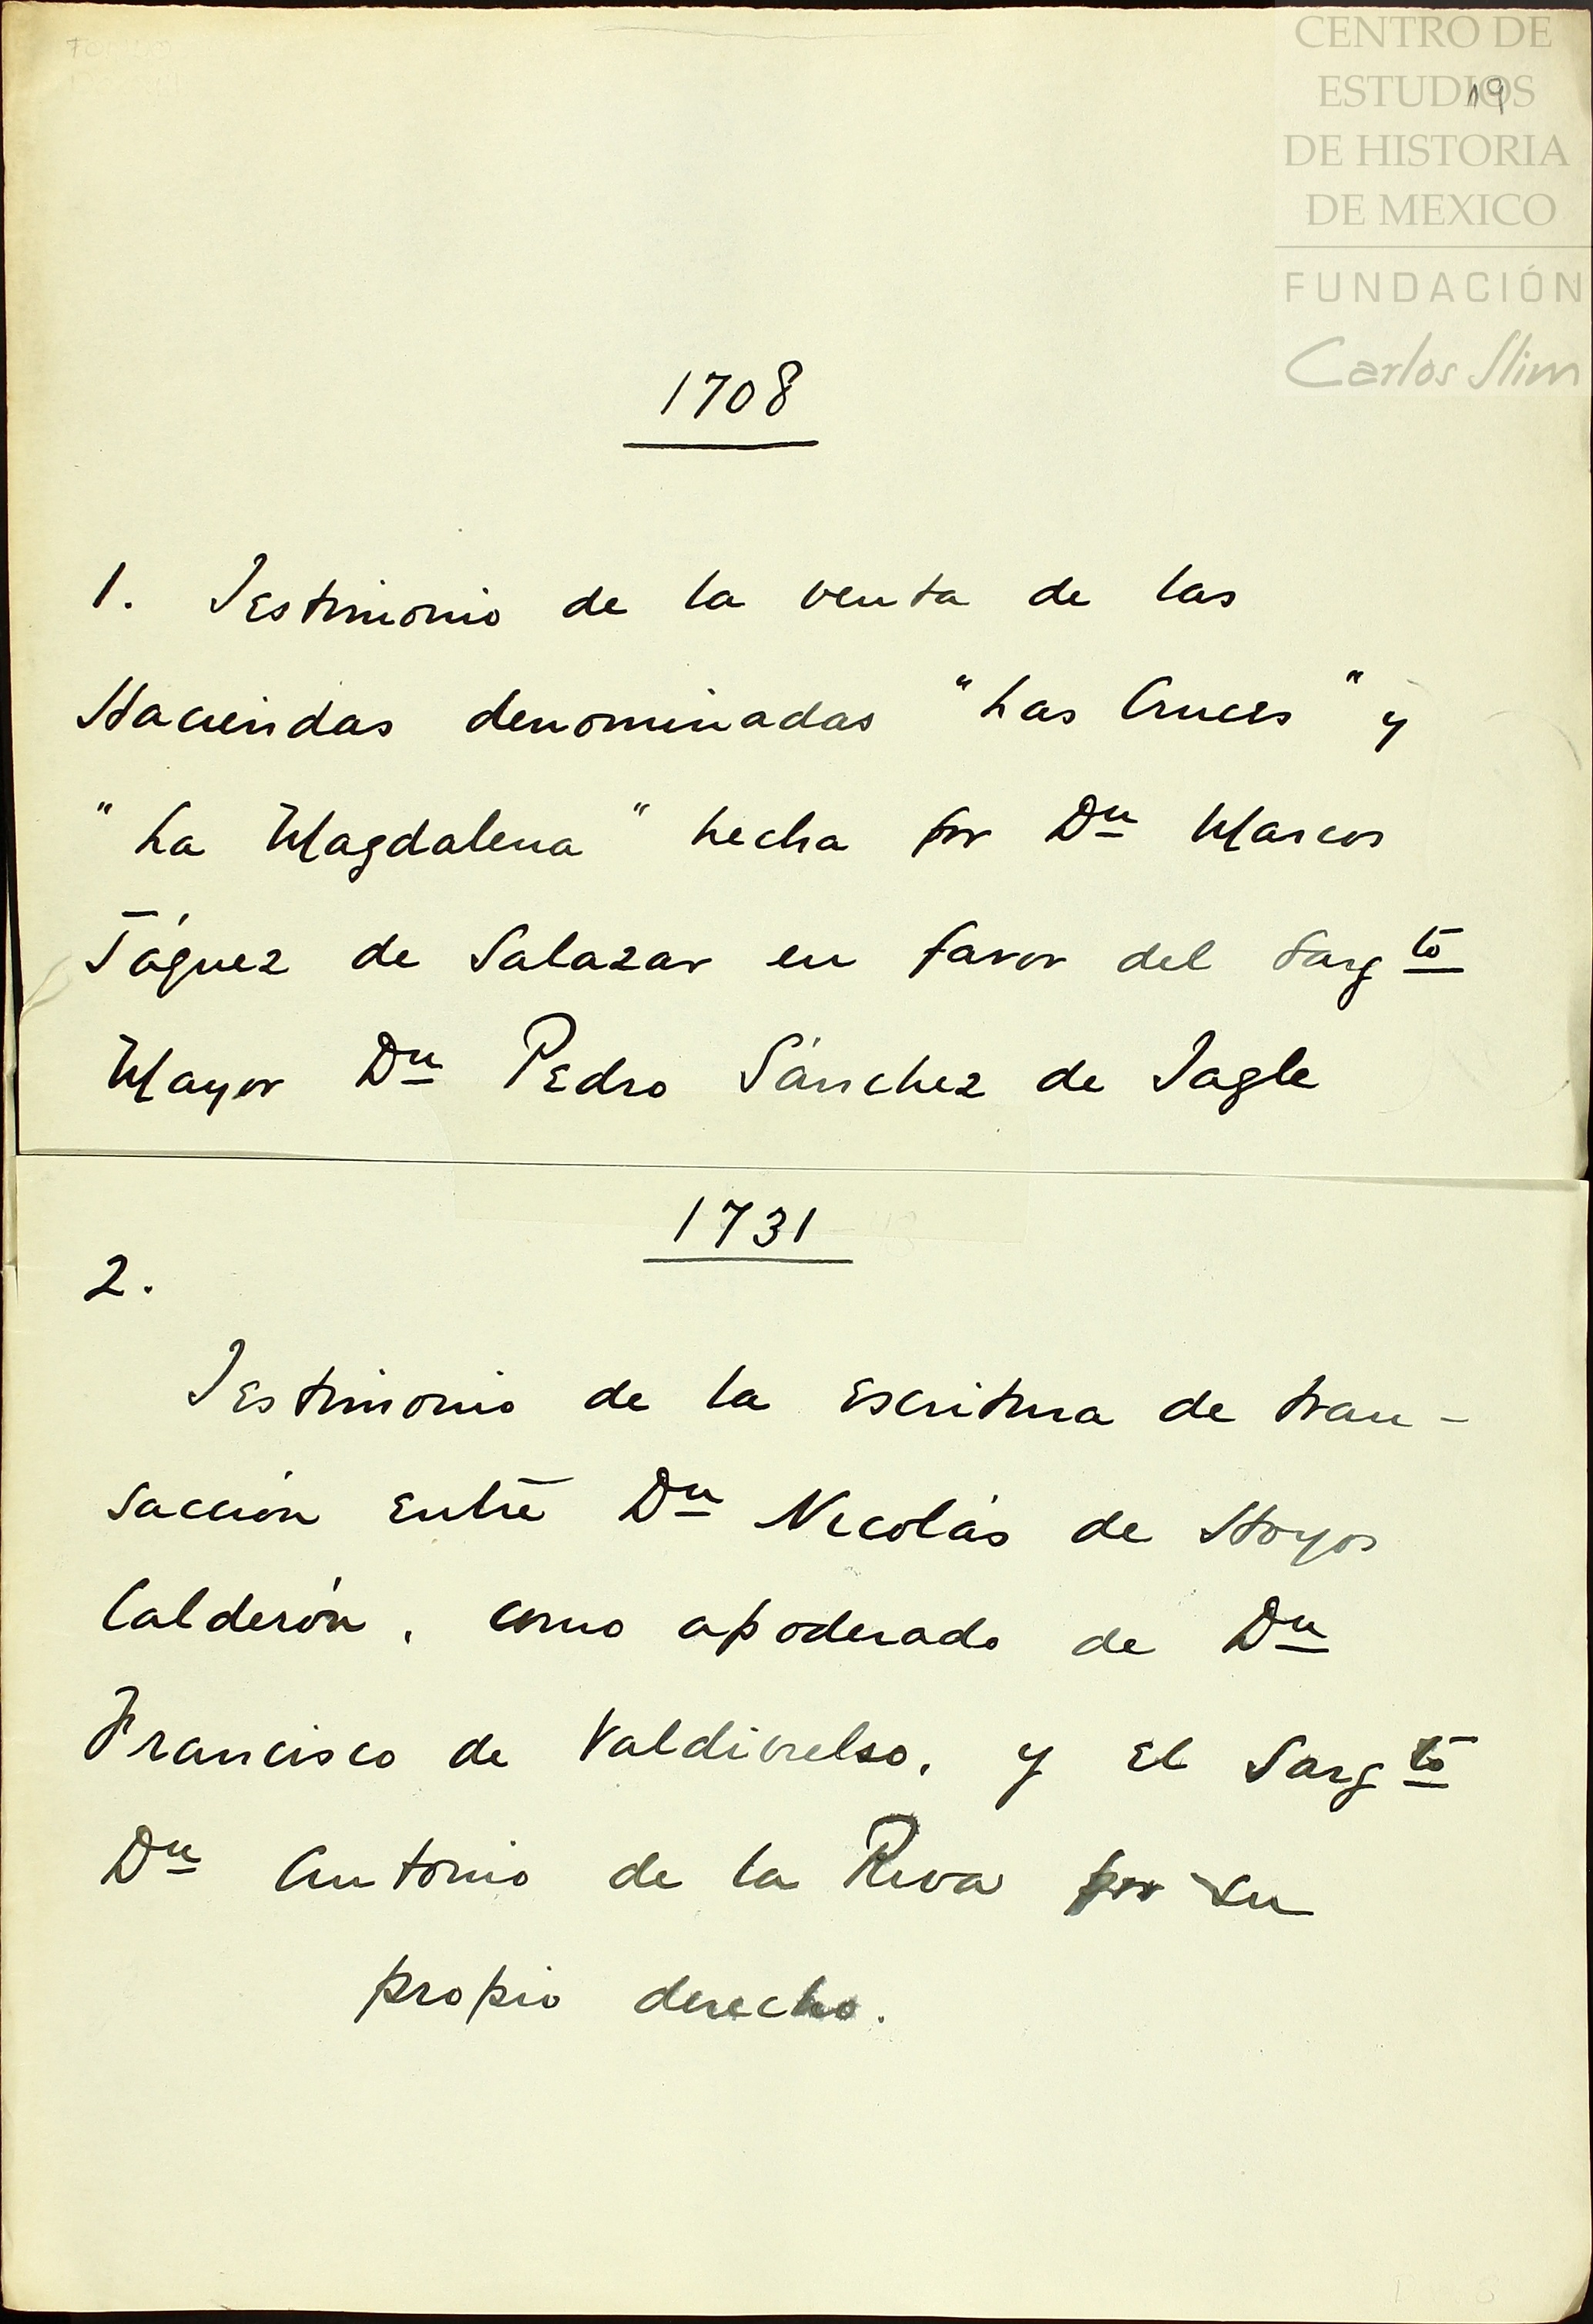 CENTRO DE
ESTUDIOS
19
DE HISTORIA
DE MEXICO
FUNDACIÓN
Carlos Slim
1708
1. Testimonio de la venta de las
Haciendas denominadas "Las Cruces" y
"La Magdalena" hecha por Dn Marcos
Táguez de Salazar en favor del Sargto
Mayor Dn Pedro Sánchez de Tagle
1731
2.
Testimonio de la Escritura de tran-
sacción Entre Dn Nicolás de Hoyos
Calderón, como apoderado de Dn
Francisco de Valdivielso, y El Sargto
Dn Antonio de la Riva por su
propio derecho.